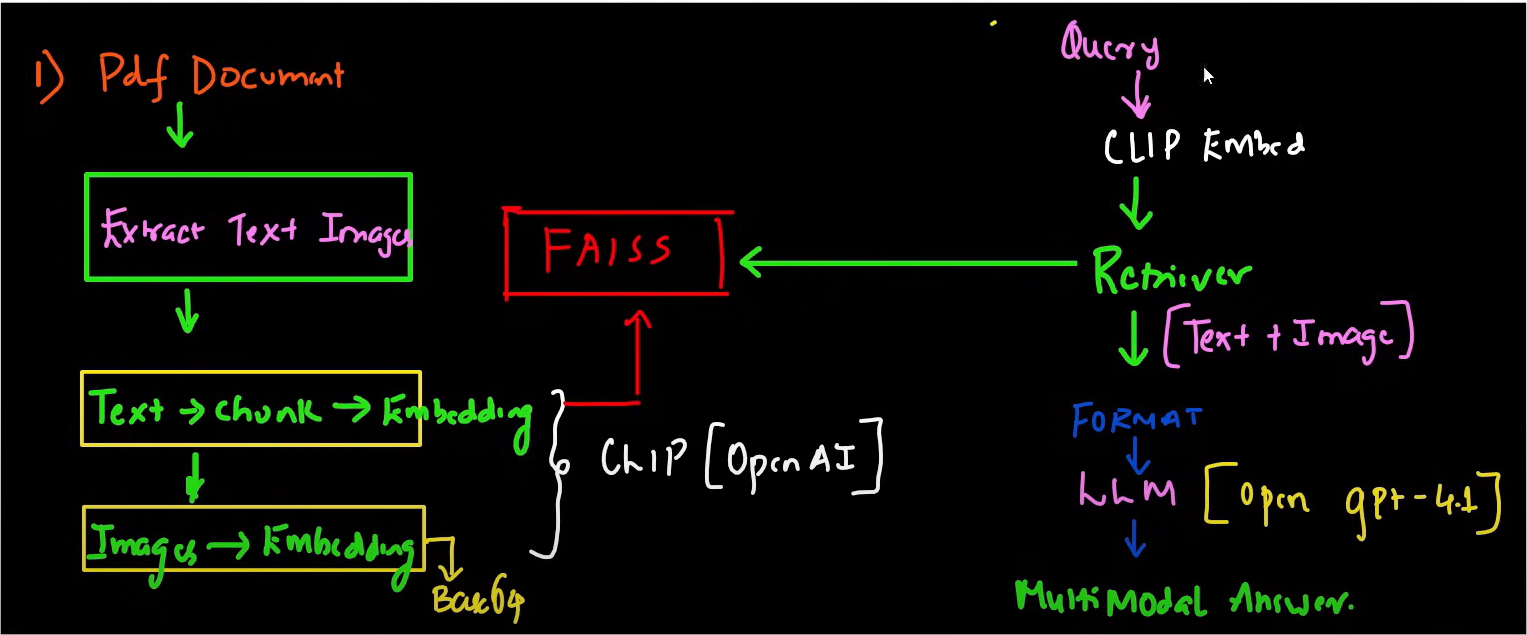 1) Pdf Document
Extract Text Images
Text → Chunk → Embedding
Images → Embedding
Base64
CLIP [OpenAI]
FAISS
Query
CLIP Embed
Retriever
[Text + Image]
FORMAT
LLM [Open gpt-4.1]
MultiModal Answer.